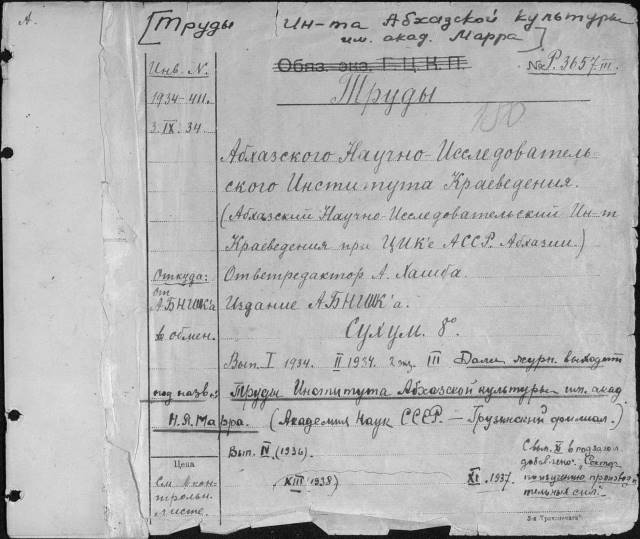 А.
[Труды Ин-та Абхазской культуры
им. акад. Марра]
Инв. N.
Обяз. экз. Г.Ц.К.П.
№ Р.3657/III.
1934-411.
Труды
3.IX.34.
150
Абхазского Научно-Исследователь-
ского Института Краеведения.
(Абхазский Научно-Исследовательский Ин-т
Краеведения при ЦИК'е АССР. Абхазии.)
Откуда:
Ответредактор А. Хашба.
от
АБНИИК'а
Издание АБНИИК'а.
в обмен.
Сухум. 8°.
Вып. I 1934. II 1934. 2 экз. III Далее журн. выходит
под назв.
Труды Института Абхазской культуры им. акад.
Н.Я. Марра. (Академия Наук СССР. – Грузинский филиал.)
Вып. IV (1936)
XIII (1938)
XI. 1937.
С вып. X в подзагол
добавлено: „Сектор
по изучению производи
тельных сил".
Цена
См. в кон-
трольн.
листе.